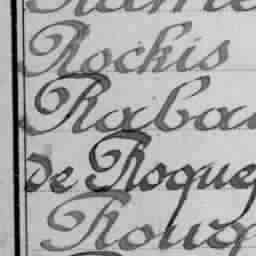 Rockis
Raba
de Roque
Rouq